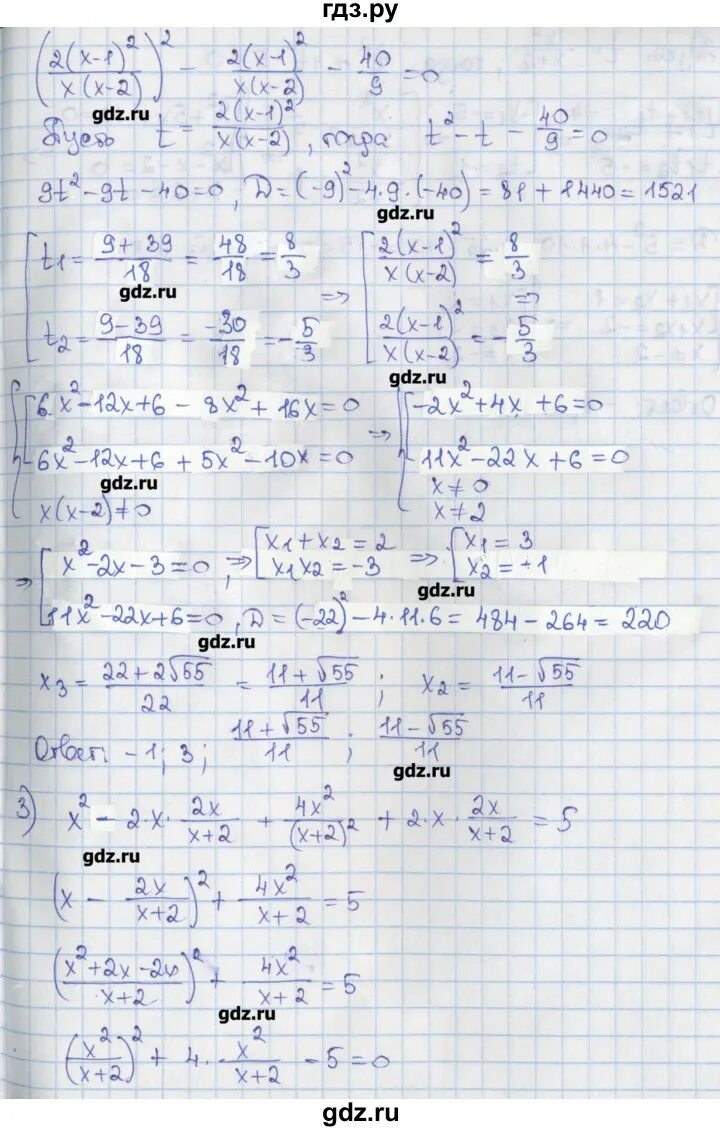 гдз.ру
(2(x-1)²/x(x-2))² - 2(x-1)²/x(x-2) - 40/9 = 0
gdz.ru
Пусть t = 2(x-1)²/x(x-2), тогда t² - t - 40/9 = 0
9t² - 9t - 40 = 0, D = (-9)² - 4·9·(-40) = 81 + 1440 = 1521
gdz.ru
[ t₁ = 9+39/18 = 48/18 = 8/3 => [ 2(x-1)²/x(x-2) = 8/3 =>
gdz.ru
t₂ = 9-39/18 = -30/18 = -5/3 2(x-1)²/x(x-2) = -5/3
gdz.ru
{ [ 6x² - 12x + 6 - 8x² + 16x = 0 => { [ -2x² + 4x + 6 = 0
6x² - 12x + 6 + 5x² - 10x = 0 11x² - 22x + 6 = 0
gdz.ru
x(x-2) ≠ 0 x ≠ 0
x ≠ 2
=> [ x² - 2x - 3 = 0, => [ x₁ + x₂ = 2 => [ x₁ = 3
x₁x₂ = -3 x₂ = -1
gdz.ru
11x² - 22x + 6 = 0, D = (-22)² - 4·11·6 = 484 - 264 = 220
gdz.ru
x₃ = 22+2√55/22 = 11+√55/11 ; x₂ = 11-√55/11
Ответ: -1; 3; 11+√55/11 ; 11-√55/11
gdz.ru
3) x² - 2·x·2x/x+2 + 4x²/(x+2)² + 2·x·2x/x+2 = 5
gdz.ru
(x - 2x/x+2)² + 4x²/x+2 = 5
(x²+2x-2x/x+2)² + 4x²/x+2 = 5
gdz.ru
(x²/x+2)² + 4·x²/x+2 - 5 = 0
gdz.ru